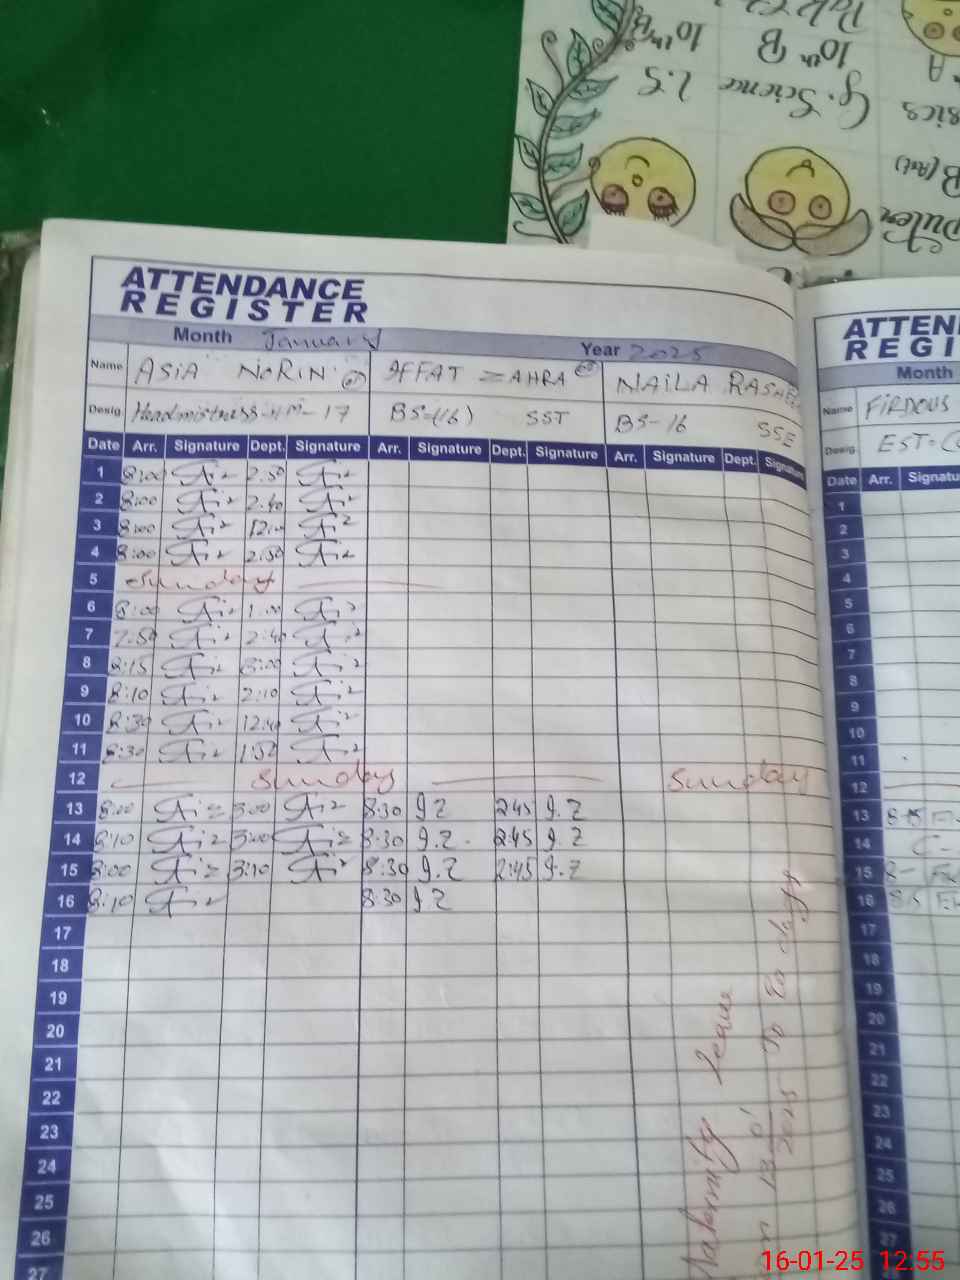 10th B 10th B
G. Science L.S
sics
B (Art)
puter
A
ATTENDANCE
REGISTER
Month January Year 2025
Name ASIA NORIN IFFAT ZAHRA NAILA RASHEE
Desig. Headmistress-HM-17 BS-(16) SST BS-16 SSE
Date Arr. Signature Dept. Signature Arr. Signature Dept. Signature Arr. Signature Dept. Signature
1 8:00 2.50
2 8:00 2.40
3 8:00
4 8:00 2:50
5 Sunday
6 8:00 1:00
7 7:50 2:40
8 8:15 3:00
9 8:10 2:10
10 8:30 12:40
11 8:30 1:50
12 Sunday Sunday
13 8:00 3:00 8:30 I.Z 2:45 I.Z
14 8:10 3:00 8:30 I.Z 2:45 I.Z
15 8:00 3:10 8:30 I.Z 2:45 I.Z
16 8:10 8:30 I.Z
17
18
19
20
21
22
23
24
25
26
27
Maternity Leave
2025 To 60 days
ATTEN
REGI
Month
Name FIRDOUS
Desig. EST-
Date Arr. Signatu
1
2
3
4
5
6
7
8
9
10
11
12
13
14
15
16
17
18
19
20
21
22
23
24
25
26
27
16-01-25 12:55